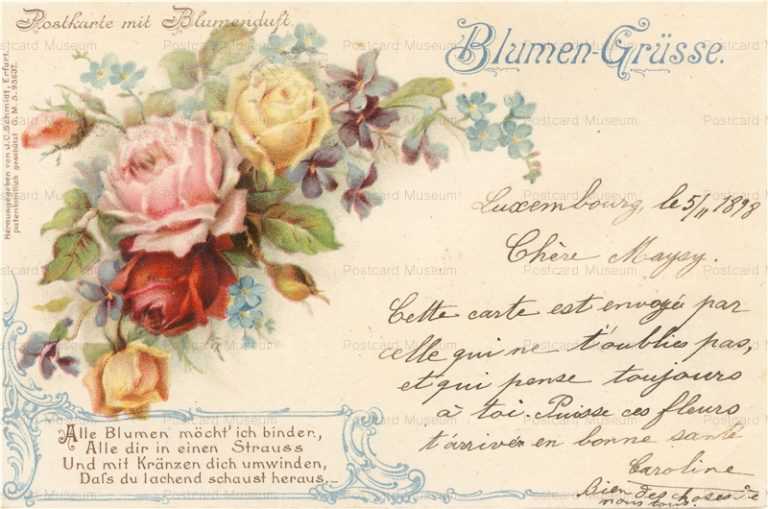 Postkarte mit Blumenduft.
Blumen-Grüsse.
Herausgegeben von J.C. Schmidt, Erfurt,
patentamtlich geschützt G.M.S. 93637.
Luxembourg, le 5/11 1898
Chère Maysy.
Cette carte est envoyée par
celle qui ne t'oublies pas,
et qui pense toujours
à toi. Puisse ces fleurs
t'arriver en bonne santé
Caroline
Bien des choses de
nous tous.
Alle Blumen möcht' ich binden,
Alle dir in einen Strauss
Und mit Kränzen dich umwinden,
Daſs du lachend schaust heraus.
Postcard Museum